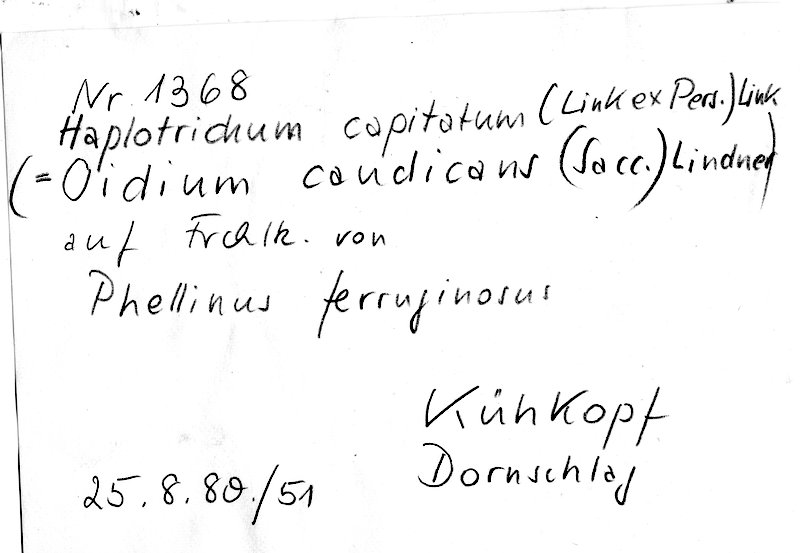 Nr. 1368
Haplotrichum capitatum (Link ex Pers.) Link
(= Oidium candicans (Sacc.) Lindner)
auf Frchlk. von
Phellinus ferruginosus
Kühkopf
Dornschlag
25.8.80./51